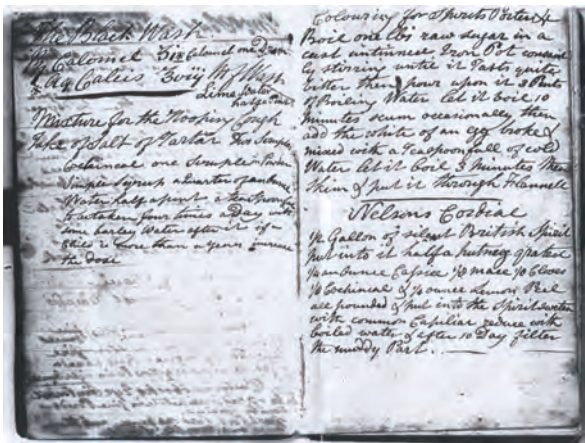 The Black Wash
Rx Calomel ʒi Calomel one Dram
& Aq Calcis ʒviij Mf Wash
Lime Water
half a Pint
Mixture for the Hooping Cough
Take of Salt of Tartar Two Scruples
Cochineal one Scruple in Powder
Simple Syrup a quarter of an ounce
Water half a pint a teaspoonful
to be taken four times a day with
some barley Water after it if
Child is more than a year increase
the dose
Colouring for Spirits Porter &
Boil one lbs raw sugar in a
cast untinned Iron Pot constant
ly stirring until it Tasts quite
bitter then pour upon it 3 Pints
of Boiling Water let it boil 10
minutes scum occasionally then
add the white of an egg broke &
mixed with a Teaspoonfull of cold
Water let it boil 3 minutes then
& put it through Flannell
Nelsons Cordial
Gallon of silent British Spirit
put into it half a nutmeg grated
an ounce mace Cloves
Cochineal & ounce Lemon Peel
all pounded & put into the Spirit
with common reduce with
boiled water & after 10 Day filter
the muddy Part.